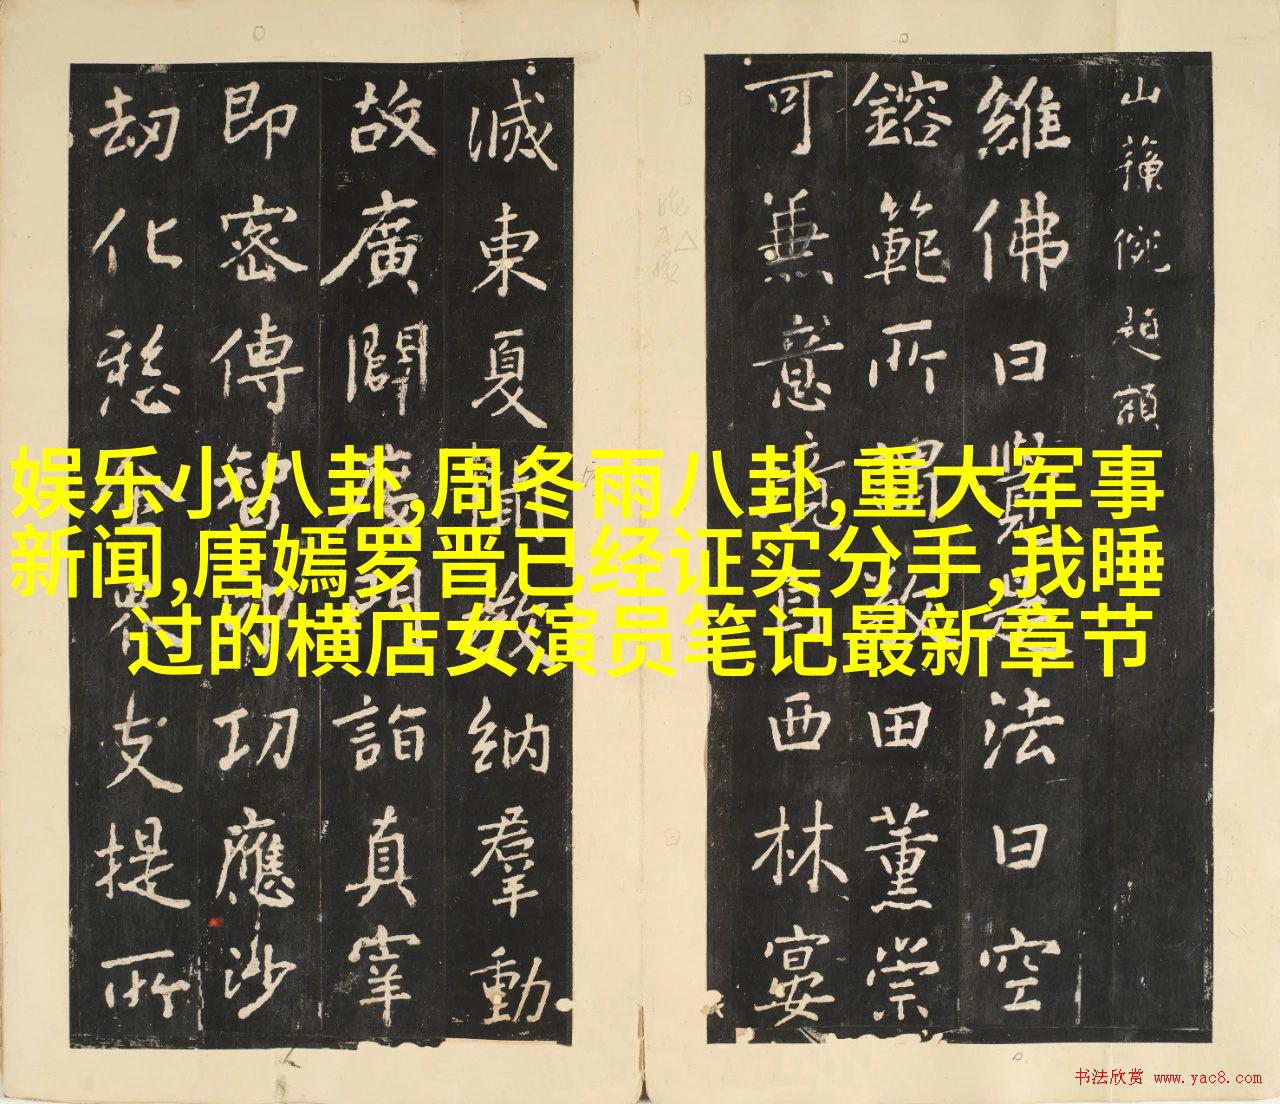 娱乐小八卦,周冬雨八卦,重大军事
新闻,唐嫣罗晋已经证实分手,我睡
过的横店女演员笔记最新章节
維佛曰覺是法曰空
鎔範所田薰崇
可兼意境自西林宴
滅東夏納羣動
故廣闢度門詣真宰
即密傳智印功應沙
劫化愁支提所
书法欣赏 www.yac8.com